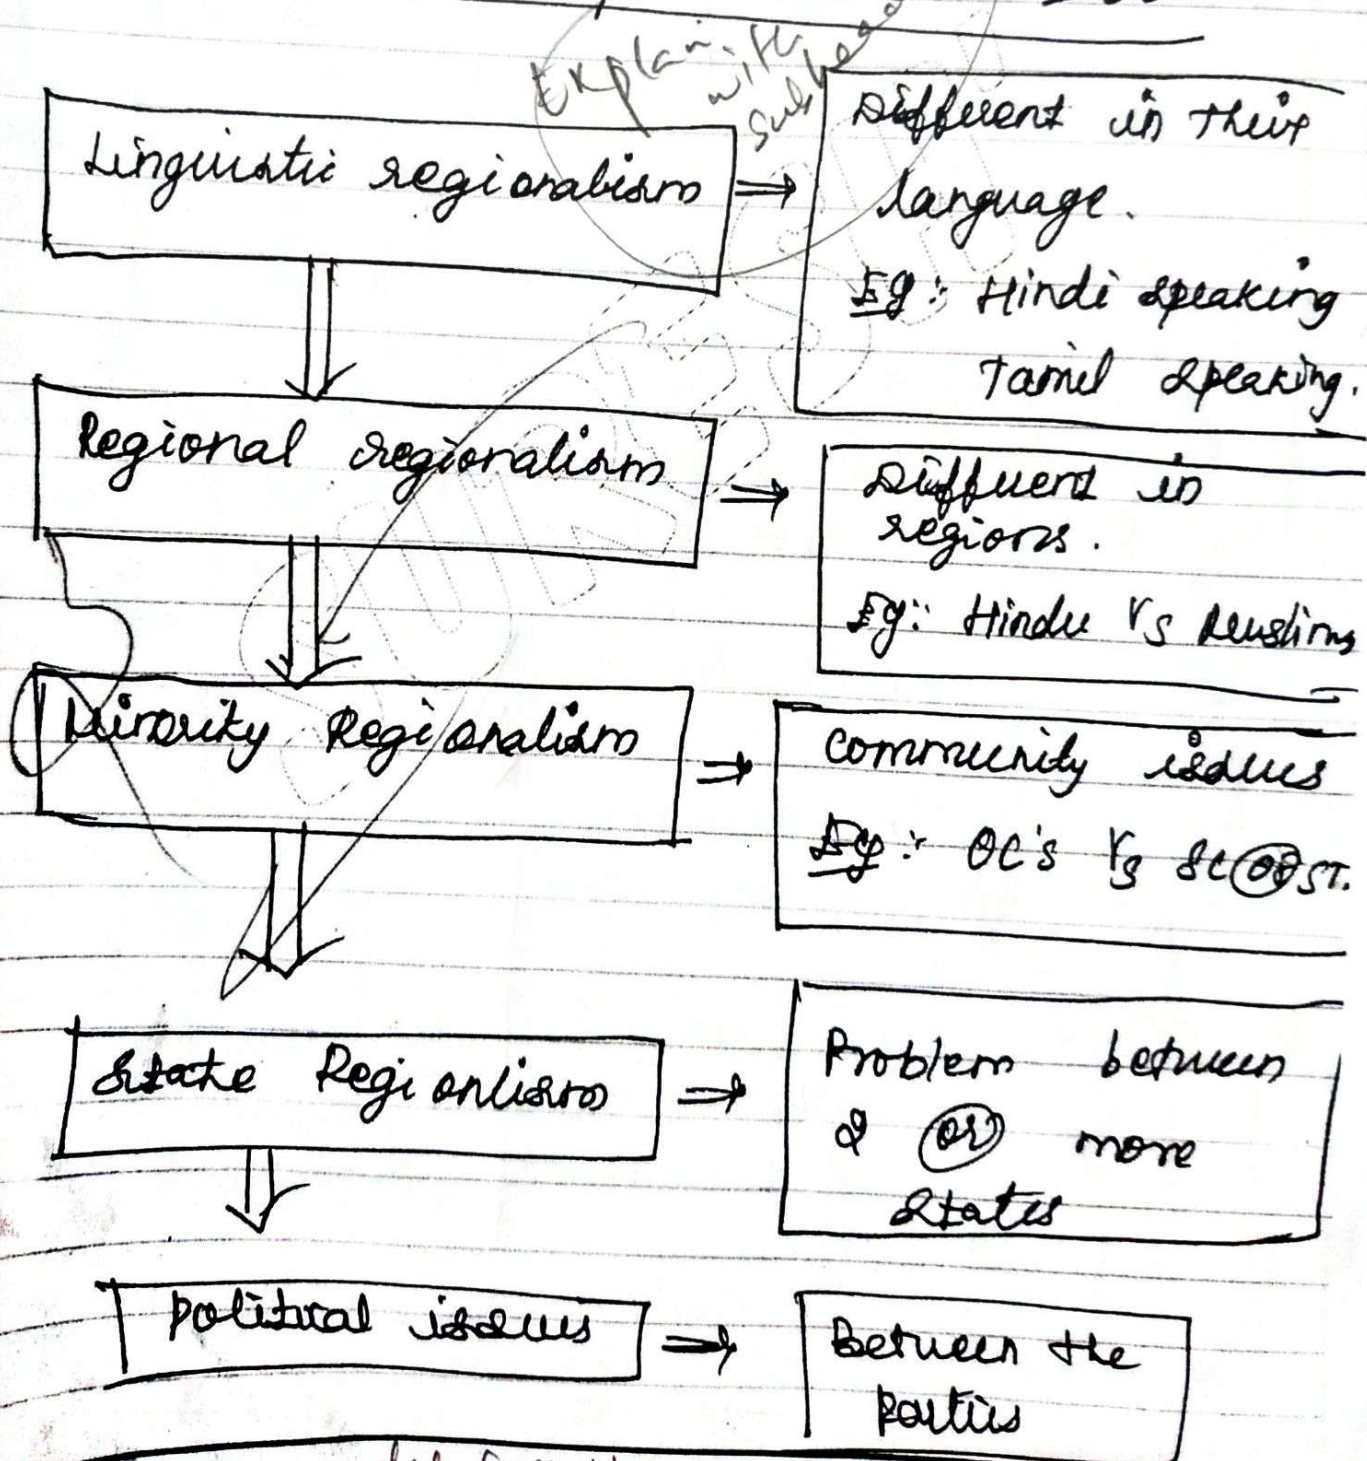 Explain
with
Linguistic regionalism ⇒
Different in their
language.
Eg: Hindi speaking
Tamil speaking.
Regional regionalism ⇒
Different in
regions.
Eg: Hindu Vs Muslims
Minority Regionalism ⇒
Community issues
Eg: OC's Vs SC or ST.
State Regionlism ⇒
Problem between
2 or more
States
Political issues ⇒
Between the
Parties